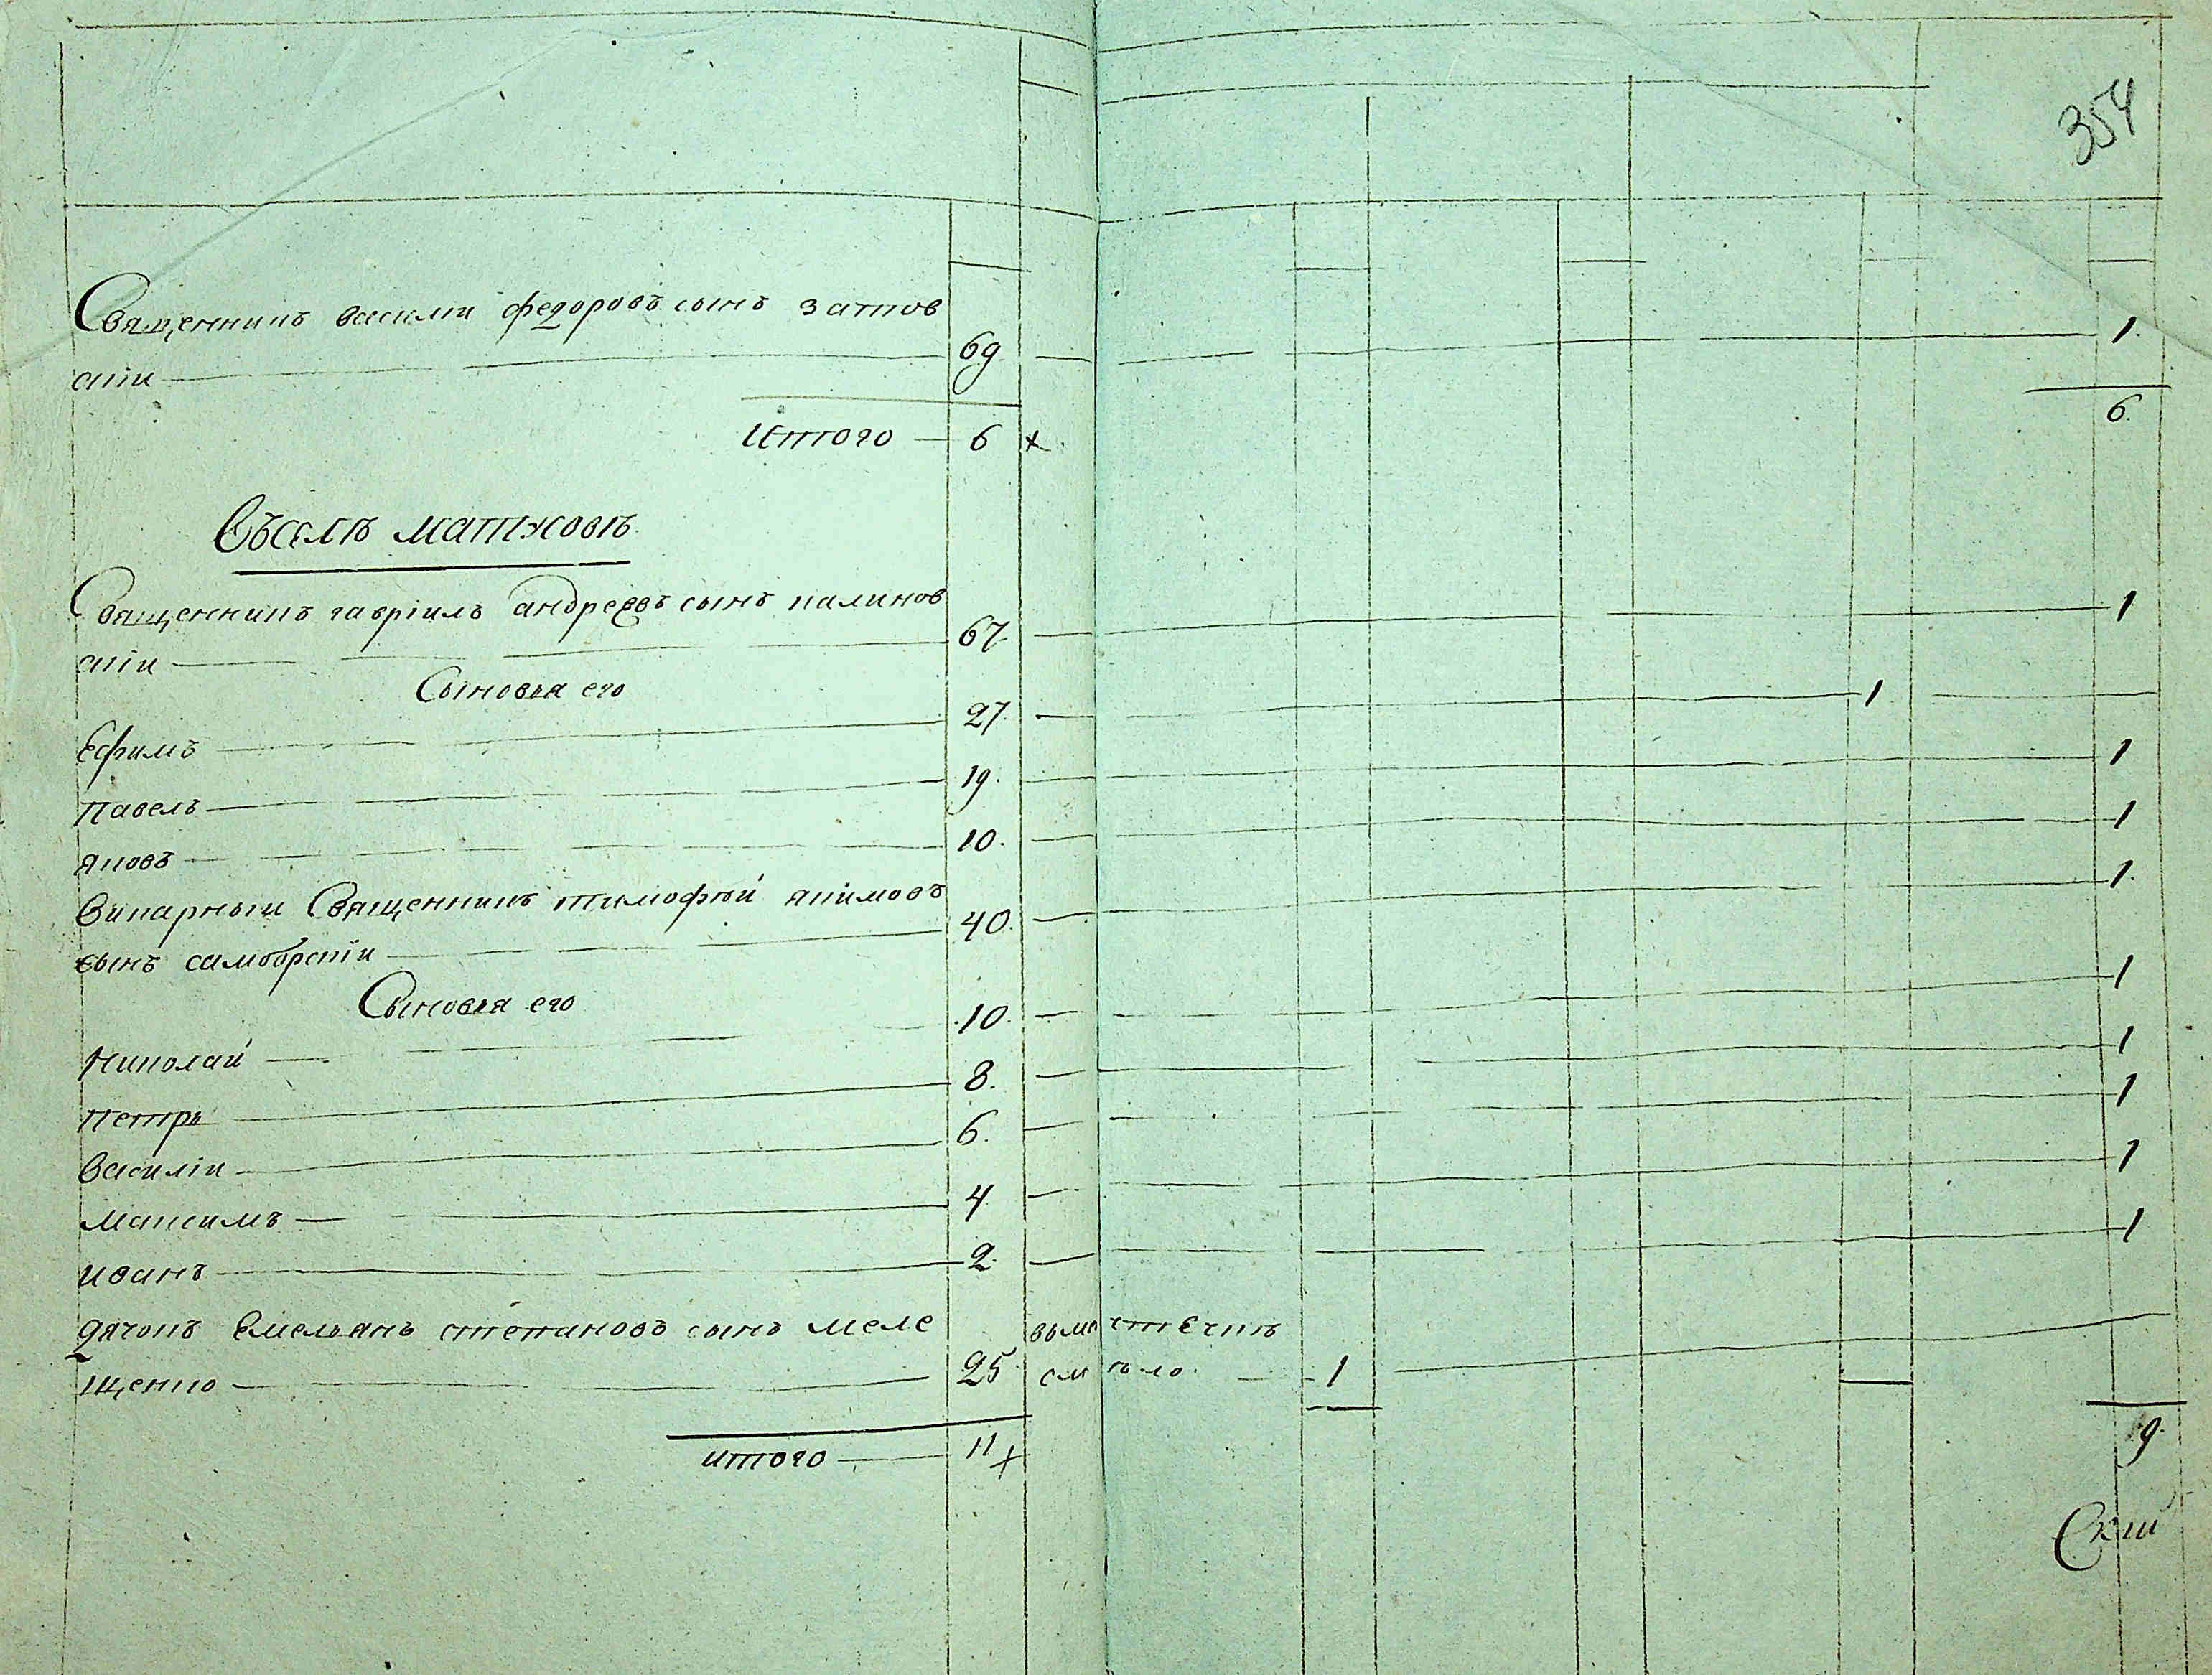 354
Священникъ василіи федоровъ сынъ затков
скіи 69 1.
Итого 6 х 6.
Въселѣ матусовѣ
Священникъ гавріилъ андреевъ сынъ калинов
скіи 67. 1
Сыновья его
Ефимъ 27. 1
Павелъ 19. 1
яковъ 10. 1
викарныи Священникъ тимофѣй якимовъ
сынъ самборскіи 40. 1.
Сыновья его
Николай 10. 1
Петръ 8. 1
василіи 6. 1
максимъ 4. 1
иванъ 2. 1
дячокъ Емельянъ степановъ сынъ меле вымѣстечкѣ
щенко 25. смѣло. 1
итого 11 х 9.
Скій